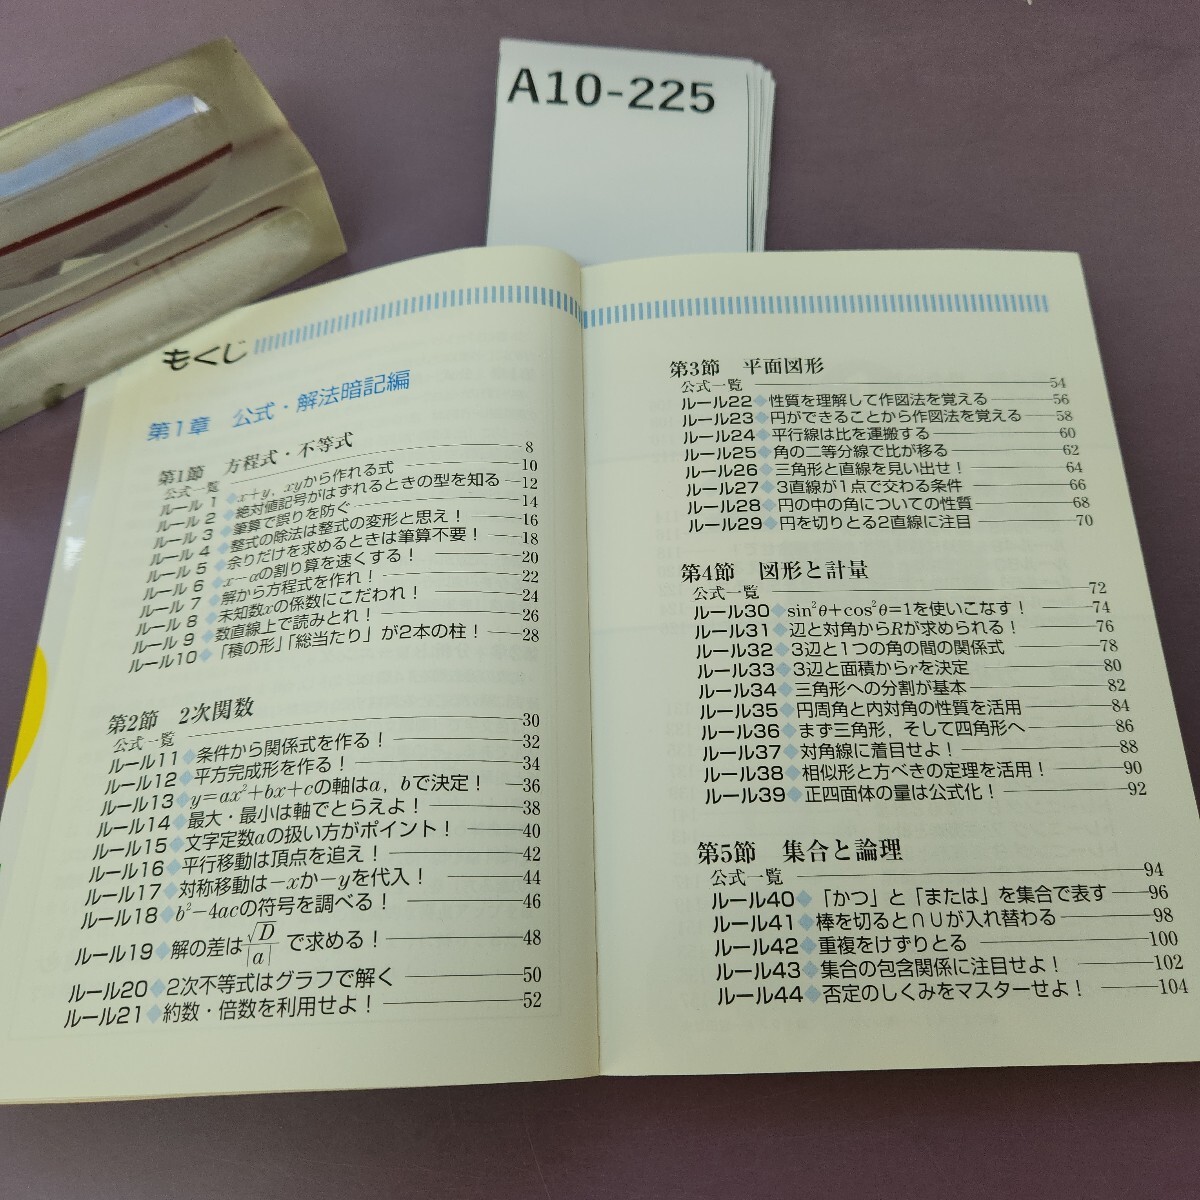 A10-225
もくじ
第1章 公式・解法暗記編
第1節 方程式・不等式
公式一覧 8
ルール 1◆x+y, xyから作れる式 10
ルール 2◆絶対値記号がはずれるときの型を知る 12
ルール 3◆筆算で誤りを防ぐ 14
ルール 4◆整式の除法は整式の変形と思え! 16
ルール 5◆余りだけを求めるときは筆算不要! 18
ルール 6◆x−αの割り算を速くする! 20
ルール 7◆解から方程式を作れ! 22
ルール 8◆未知数xの係数にこだわれ! 24
ルール 9◆数直線上で読みとれ! 26
ルール10◆「積の形」「総当たり」が2本の柱! 28
第2節 2次関数
公式一覧 30
ルール11◆条件から関係式を作る! 32
ルール12◆平方完成形を作る! 34
ルール13◆y=ax²+bx+cの軸はa, bで決定! 36
ルール14◆最大・最小は軸でとらえよ! 38
ルール15◆文字定数aの扱い方がポイント! 40
ルール16◆平行移動は頂点を追え! 42
ルール17◆対称移動は−xか−yを代入! 44
ルール18◆b²−4acの符号を調べる! 46
ルール19◆解の差は√D/|a|で求める! 48
ルール20◆2次不等式はグラフで解く 50
ルール21◆約数・倍数を利用せよ! 52
第3節 平面図形
公式一覧 54
ルール22◆性質を理解して作図法を覚える 56
ルール23◆円ができることから作図法を覚える 58
ルール24◆平行線は比を運搬する 60
ルール25◆角の二等分線で比が移る 62
ルール26◆三角形と直線を見い出せ! 64
ルール27◆3直線が1点で交わる条件 66
ルール28◆円の中の角についての性質 68
ルール29◆円を切りとる2直線に注目 70
第4節 図形と計量
公式一覧 72
ルール30◆sin²θ+cos²θ=1を使いこなす! 74
ルール31◆辺と対角からRが求められる! 76
ルール32◆3辺と1つの角の間の関係式 78
ルール33◆3辺と面積からrを決定 80
ルール34◆三角形への分割が基本 82
ルール35◆円周角と内対角の性質を活用 84
ルール36◆まず三角形,そして四角形へ 86
ルール37◆対角線に着目せよ! 88
ルール38◆相似形と方べきの定理を活用! 90
ルール39◆正四面体の量は公式化! 92
第5節 集合と論理
公式一覧 94
ルール40◆「かつ」と「または」を集合で表す 96
ルール41◆棒を切ると∩∪が入れ替わる 98
ルール42◆重複をけずりとる 100
ルール43◆集合の包含関係に注目せよ! 102
ルール44◆否定のしくみをマスターせよ! 104